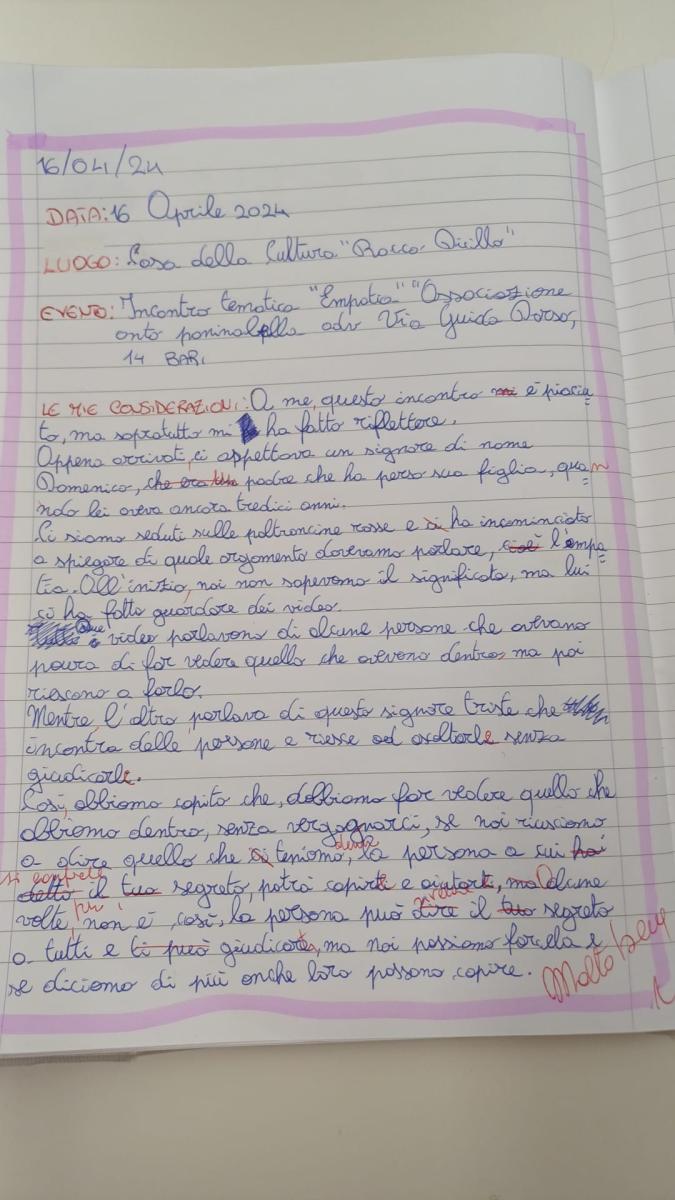 16/04/24
DATA: 16 Aprile 2024
LUOGO: Casa della Cultura "Rocco Dicillo"
EVENTO: Incontro tematica "Empatia" "Associazione
adv Via Guido Dorso,
14 BARI
LE MIE CONSIDERAZIONI: A me, questo incontro mi è piaciu
to, ma sopratutto mi ha fatto riflettere.
Appena arrivati, ci appettava un signore di nome
Domenico, che era un padre che ha perso sua figlia, quan
ndo lei aveva ancora tredici anni.
Ci siamo seduti sulle poltroncine rosse e si ha incominciato
a spiegare di quale argomento dovevamo parlare, cioè l'empa
tia. All'inizio, noi non sapevamo il significato, ma lui
ci ha fatto guardare dei video.
Due video parlavano di alcune persone che avevano
paura di far vedere quello che avevano dentro, ma poi
riescono a farlo.
Mentre, l'altro parlava di questo signore triste che
incontra delle persone e riesce ad ascoltarle senza
giudicarle.
Così, abbiamo capito che, dobbiamo far vedere quello che
abbiamo dentro, senza vergognarci, se noi riusciamo
a dire quello che ci teniamo, dentro la persona a cui hai
si confida
detto il tuo segreto, potrà capirti e aiutarti, ma alcune
volte, non è, così, la persona può dire il tuo segreto
a tutti e ti può giudicarti, ma noi possiamo farcela e
se diciamo di più anche loro possono capire.
Molto bene